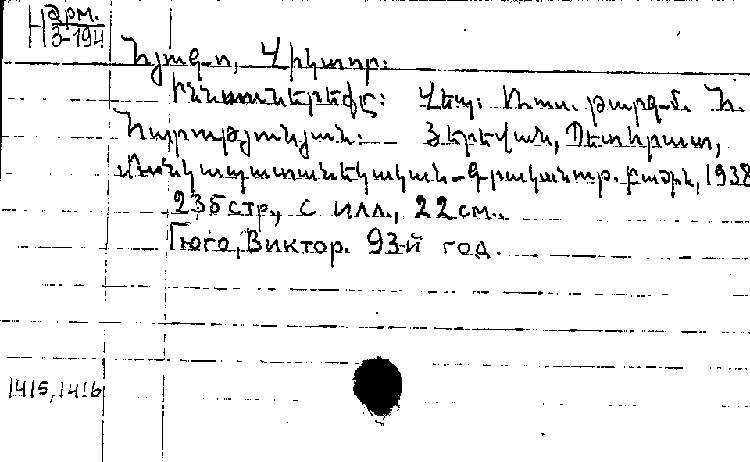 H арм.
3-194
Հյուգո, Վիկտոր։
Իննսուներեքը։ Վեպ։ Ռուս. թարգմ. Հ.
Հարությունյան։ Յերեվան, Պետհրատ,
Մանկապատանեկական-գրականութ. բաժին, 1938
236 стр., с илл., 22 см.
Гюго, Виктор. 93-й год.
1415, 1416